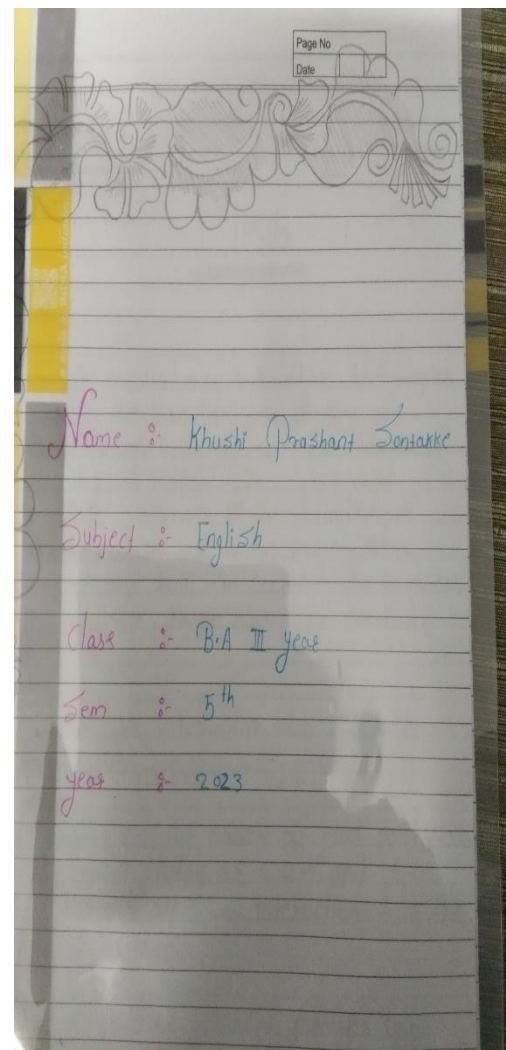 Page No
Date
Name :- Khushi Prashant Sontakke
Subject :- English
Class :- B.A III year
Sem :- 5th
year :- 2023